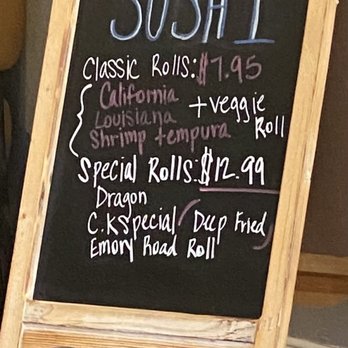 SUSHI
Classic Rolls: $7.95
California
Louisiana
Shrimp tempura
+ veggie
Roll
Special Rolls: $12.99
Dragon
C.K Special (Deep Fried)
Emory Road Roll